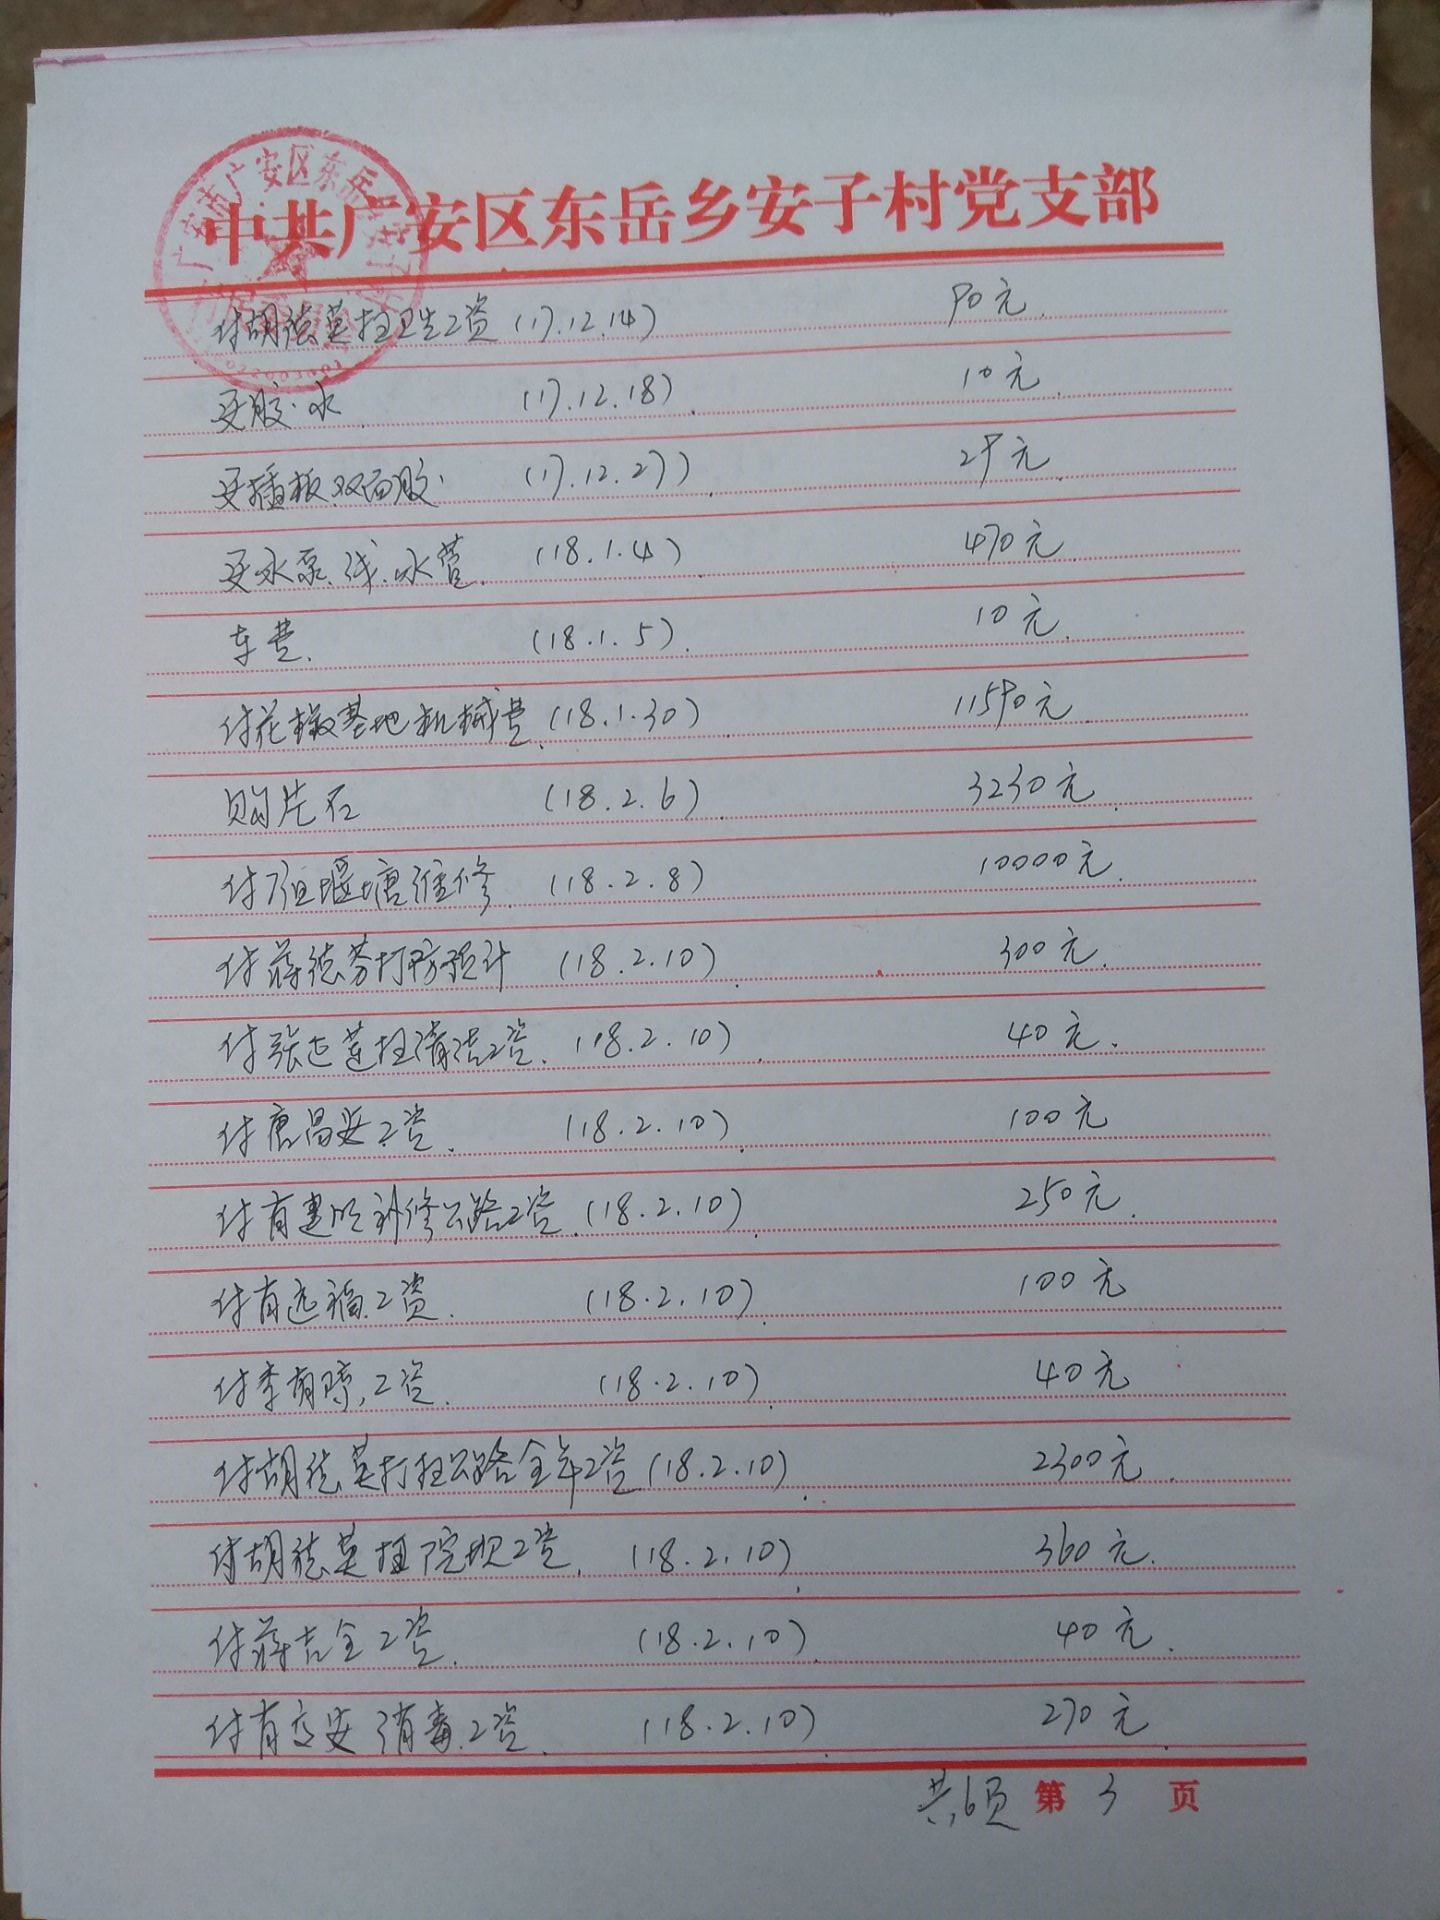 中共广安区东岳乡安子村党支部
付胡德英扫卫生工资 (17.12.14) 90元.
买胶水 (17.12.18). 10元.
买插板.双面胶. (17.12.27). 29元
买水泵.线.水管. (18.1.4). 470元.
车费. (18.1.5). 10元.
付花椒基地机械费. (18.1.30) 11590元.
购片石 (18.2.6). 3230元.
付堰塘维修. (18.2.8) 10000元.
付蒋德芬打防预针 (18.2.10). 300元.
付张莲扫清洁工资. (18.2.10). 40元.
付唐昌安工资. (18.2.10). 100元
付肖建补修公路工资. (18.2.10). 250元.
付肖远福工资. (18.2.10). 100元
付李有工资. (18.2.10). 40元
付胡德英打扫公路全年工资 (18.2.10). 2300元.
付胡德英扫院坝工资. (18.2.10). 360元.
付蒋吉全工资. (18.2.10). 40元.
付肖立安消毒工资. (18.2.10). 270元.
共6页 第 3 页